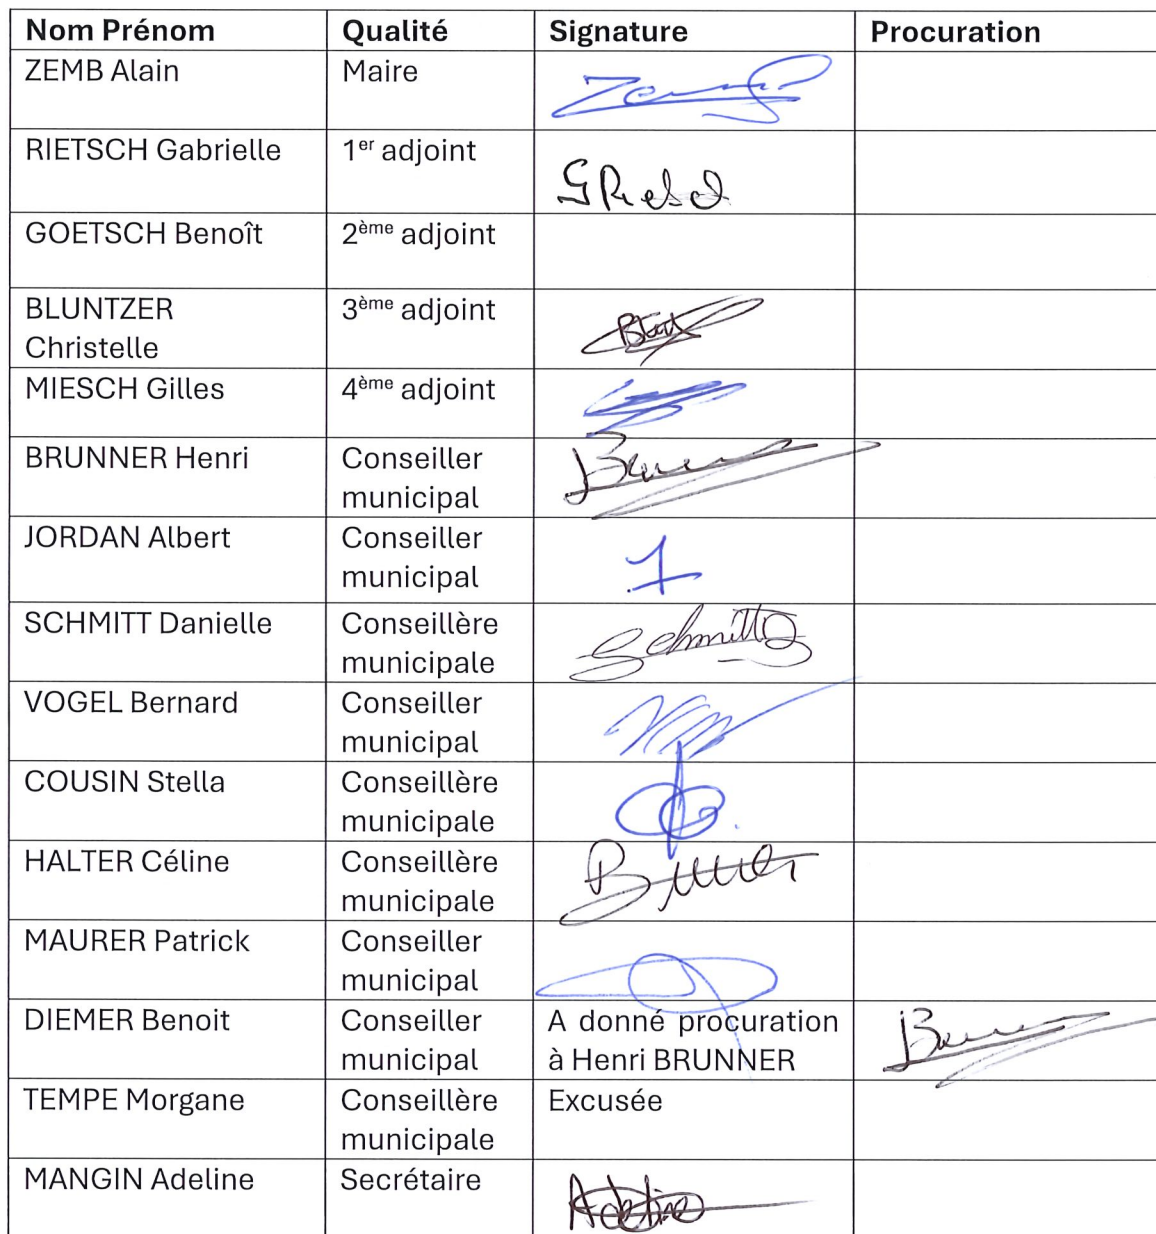 Nom Prénom Qualité Signature Procuration
ZEMB Alain Maire
RIETSCH Gabrielle 1er adjoint
GOETSCH Benoît 2ème adjoint
BLUNTZER 3ème adjoint
Christelle
MIESCH Gilles 4ème adjoint
BRUNNER Henri Conseiller
municipal
JORDAN Albert Conseiller
municipal
SCHMITT Danielle Conseillère Schmitt
municipale
VOGEL Bernard Conseiller
municipal
COUSIN Stella Conseillère
municipale
HALTER Céline Conseillère
municipale
MAURER Patrick Conseiller
municipal
DIEMER Benoit Conseiller A donné procuration
municipal à Henri BRUNNER
TEMPE Morgane Conseillère Excusée
municipale
MANGIN Adeline Secrétaire Adeline